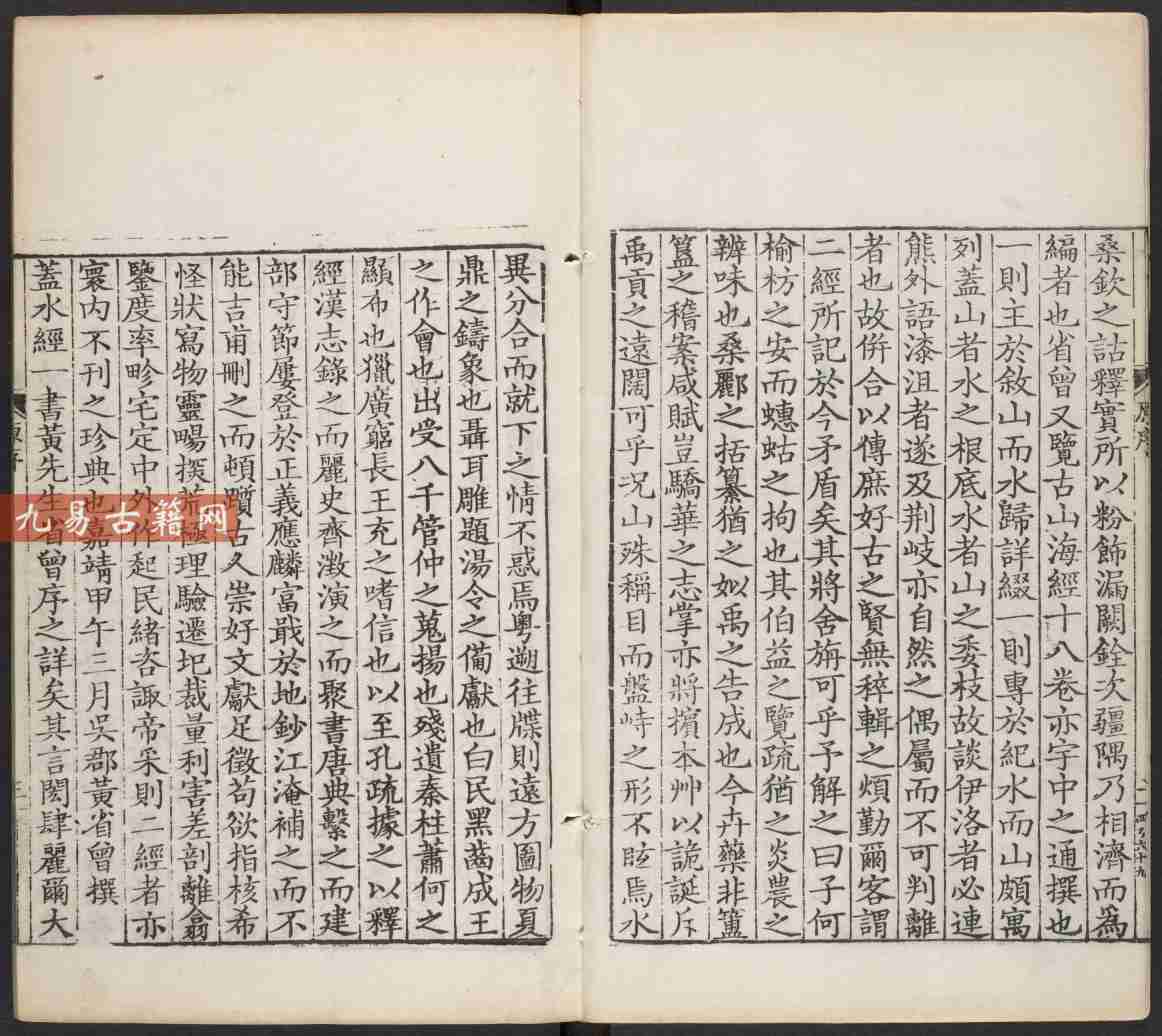 桑欽之詁釋實所以粉飾漏闕銓次疆隅乃相濟而爲
編者也省曾又覽古山海經十八卷亦宇中之通撰也
一則主於敘山而水歸詳綴一則專於紀水而山頗寓
列蓋山者水之根底水者山之委枝故談伊洛者必連
熊外語漆沮者遂及荆岐亦自然之偶屬而不可判離
者也故併合以傳庶好古之賢無稡輯之煩勤爾客謂
二經所記於今矛盾矣其將舍旃可乎予解之曰子何
榆枋之安而蟪蛄之拘也其伯益之覽疏猶之炎農之
辨味也桑酈之括纂猶之姒禹之告成也今卉藥非簠
簋之稽案咸賦豈驕華之志掌亦將擯本艸以詭誕斥
禹貢之遠闊可乎况山殊稱目而盤峙之形不眩焉水
異分合而就下之情不惑焉粵遡往牒則遠方圖物夏
鼎之鑄象也聶耳雕題湯令之備獻也白民黑齒成王
之作會也出受八千管仲之蒐揚也殘遺秦柱蕭何之
顯布也獵廣窮長王充之嗜信也以至孔疏據之以釋
經漢志錄之而麗史齊澂演之而聚書唐典繫之而建
部守節屢登於正義應麟富戢於地鈔江淹補之而不
能吉甫刪之而頓躓古久崇好文獻足徵苟欲指核希
怪狀寫物靈暢探荒極理驗遷圯裁量利害差剖離翕
鑒度率畛宅定中外作起民緒咨諏帝采則二經者亦
寰内不刊之珍典也嘉靖甲午三月吳郡黃省曾撰
蓋水經一書黃先生省曾序之詳矣其言閎肆麗爾大
九易古籍网